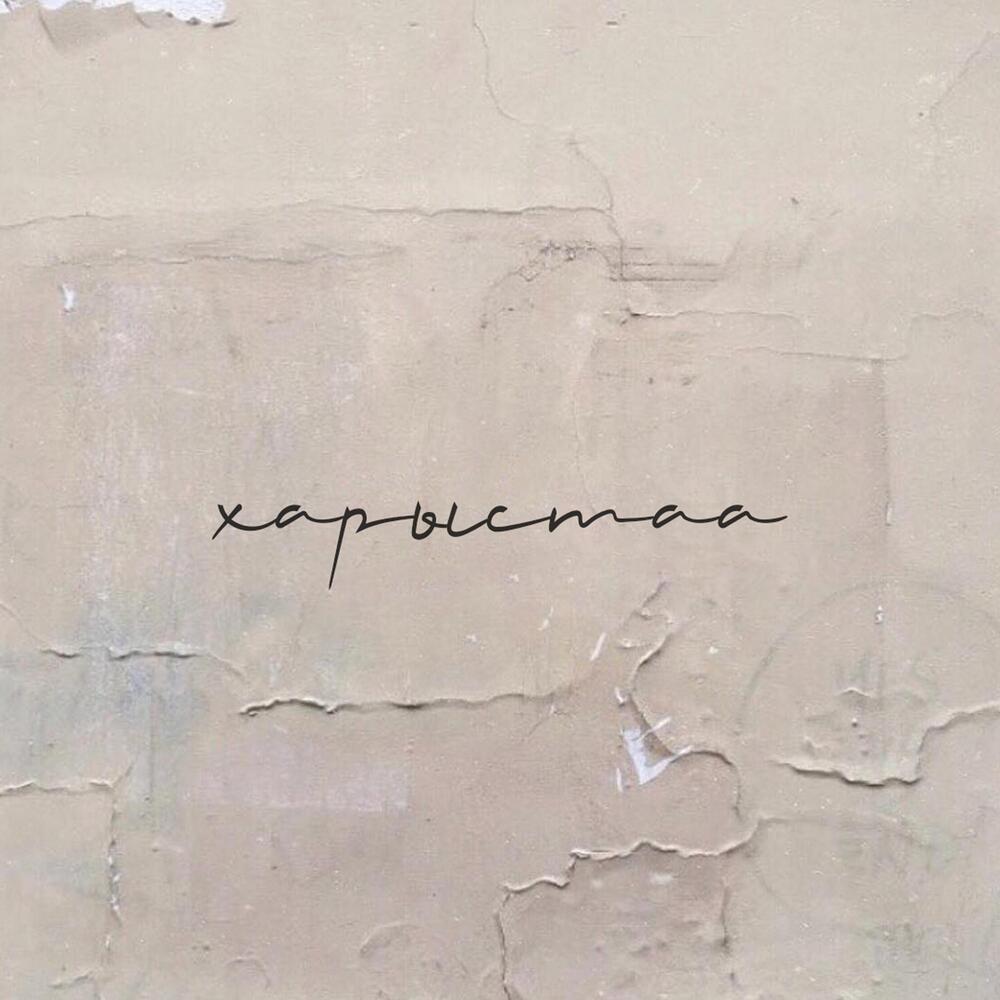 харыстаа